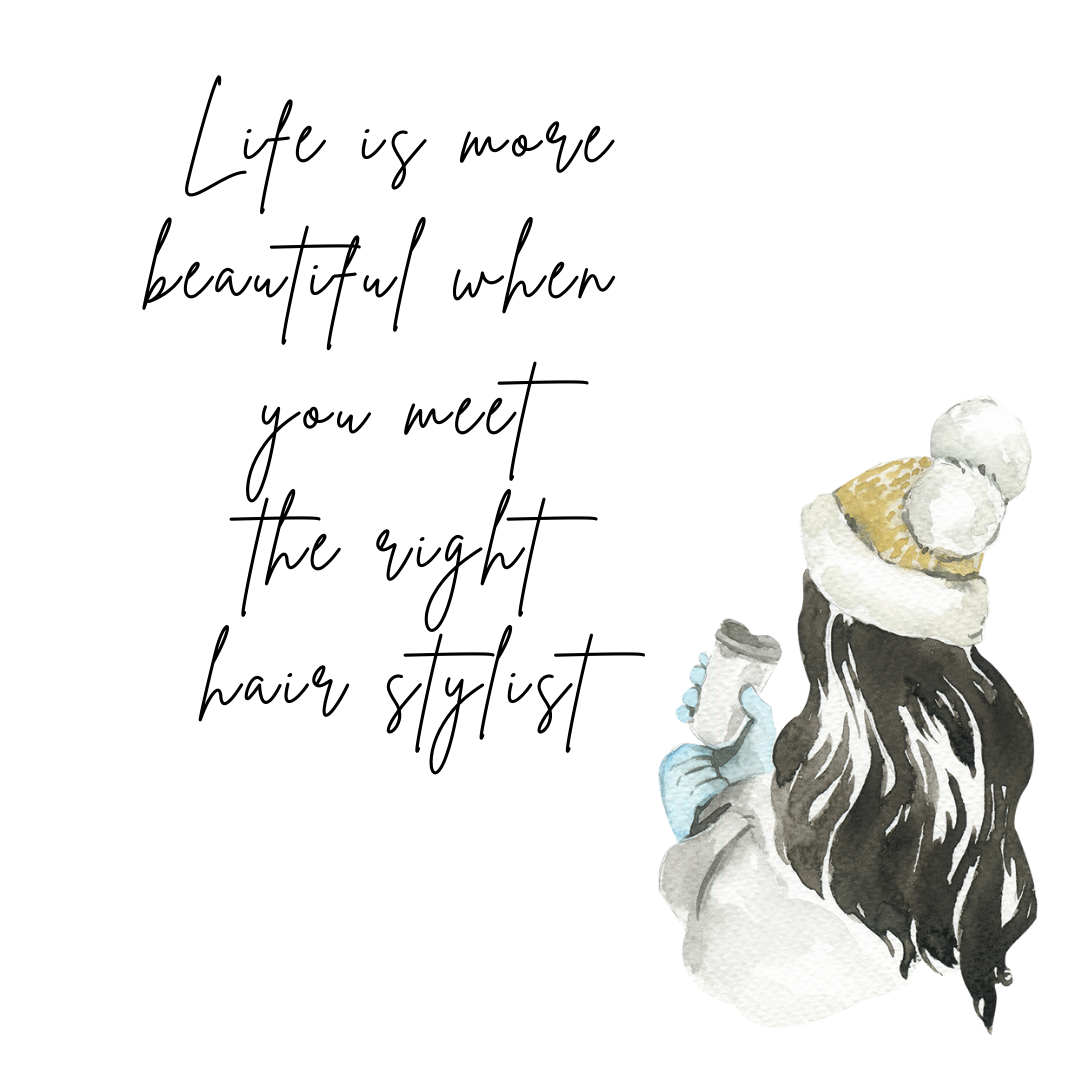 Life is more
beautiful when
you meet
the right
hair stylist